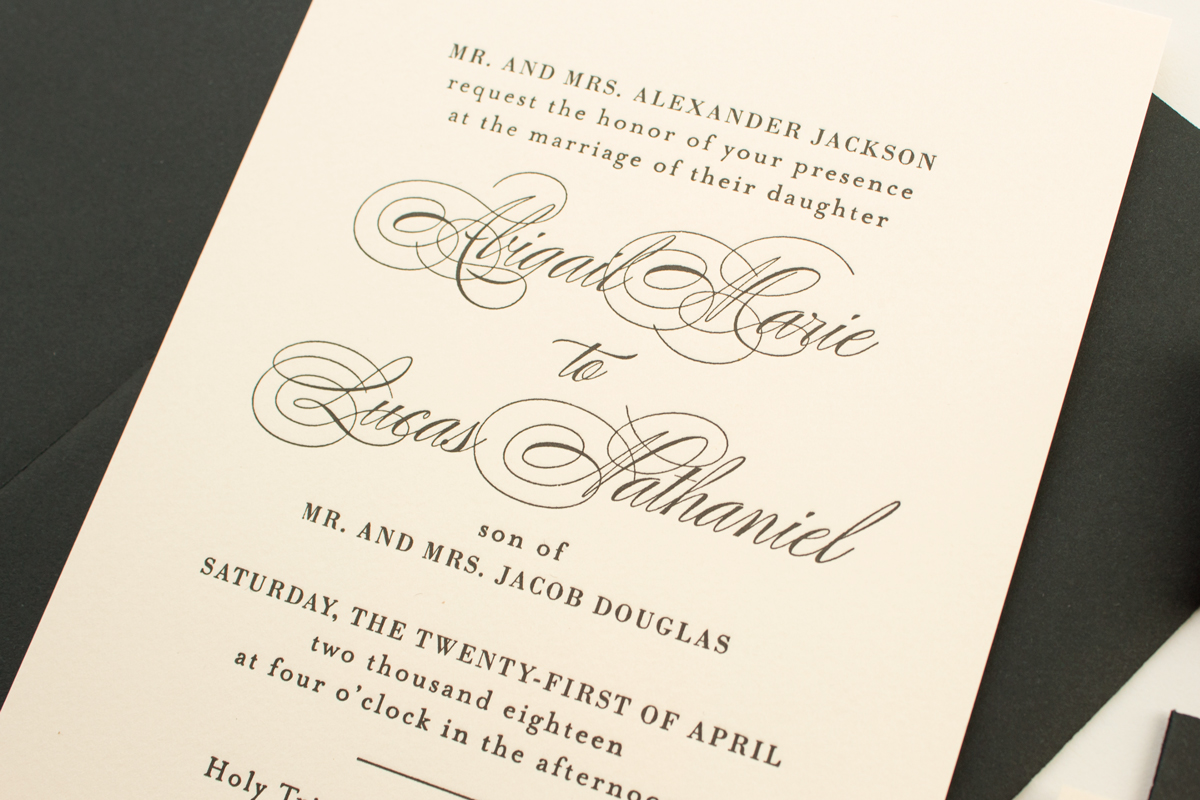 MR. AND MRS. ALEXANDER JACKSON
request the honor of your presence
at the marriage of their daughter
Abigail Marie
to
Lucas Nathaniel
son of
MR. AND MRS. JACOB DOUGLAS
SATURDAY, THE TWENTY-FIRST OF APRIL
two thousand eighteen
at four o’clock in the afternoo
Holy Tri